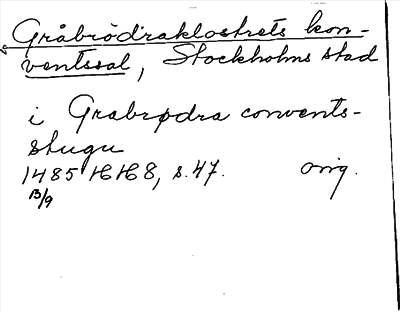 Gråbrödraklostrets kon-
ventssal, Stockholms stad
i Grabrødra convents-
stugu
1485 HH 8, s. 47. orig.
13/9